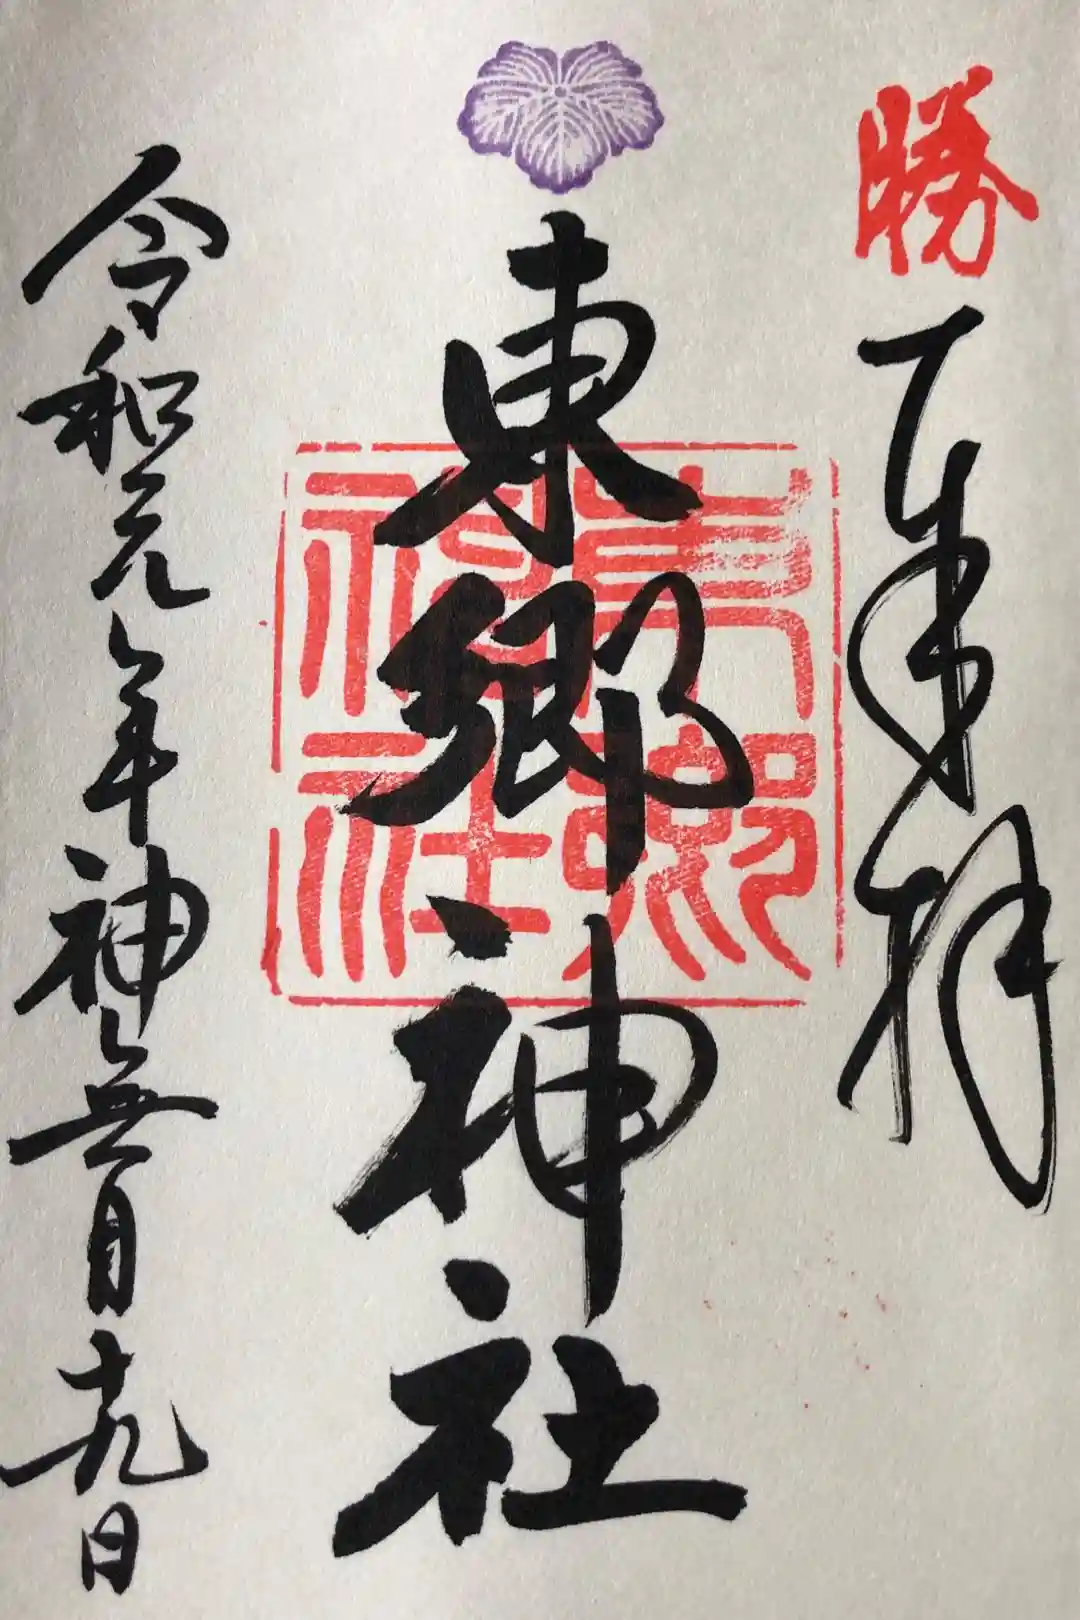 勝
奉拝
東郷神社
東郷神社
令和元年神無月十九日